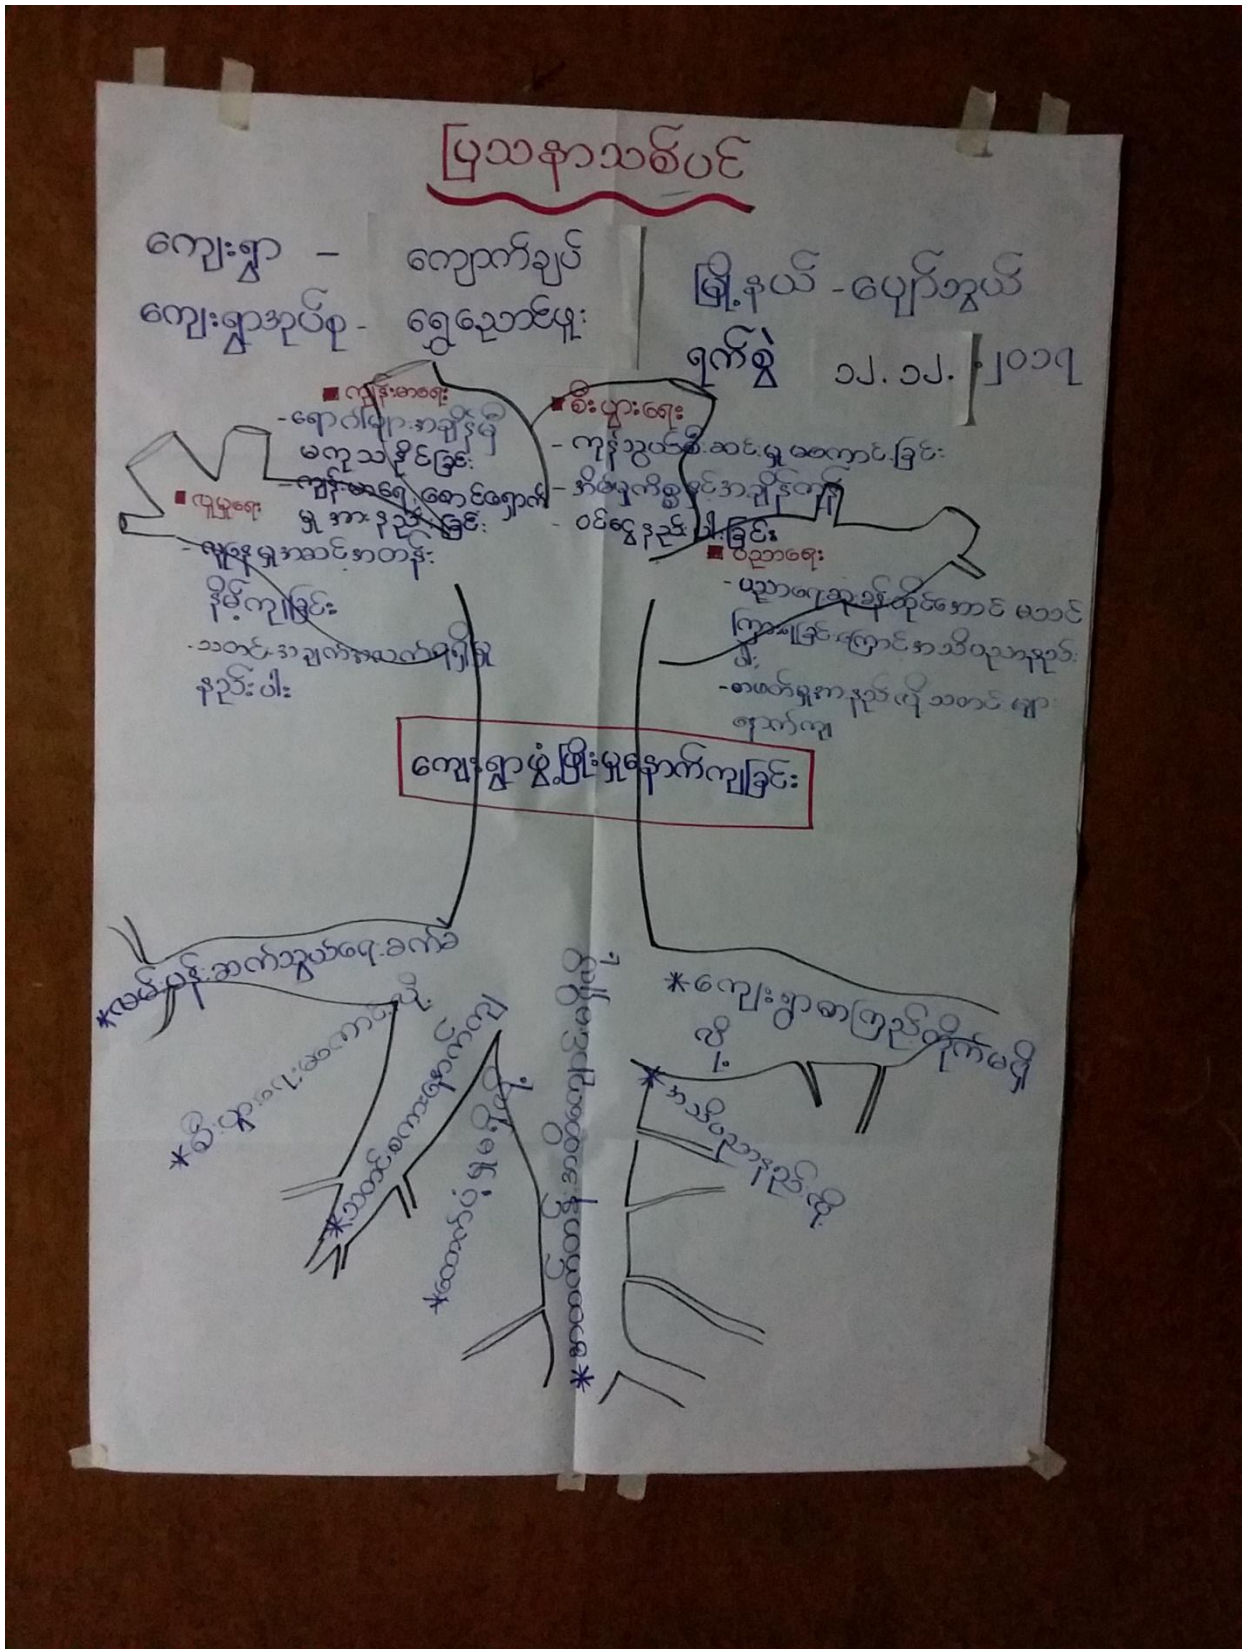 ပြဿနာသစ်ပင်
ကျေးရွာ - ကျောက်ချပ်
မြို့နယ် - ပျော်ဘွယ်
ကျေးရွာအုပ်စု - ရွှေညောင်ဖူး
ရက်စွဲ ၁၂.၁၂.၂၀၁၇
ကျန်းမာရေး
- ရောဂါများအချိန်မှီ
မကုသနိုင်ခြင်း
- ကျန်းမာရေးစောင့်ရှောက်
မှုအားနည်းခြင်း
စီးပွားရေး
- ကုန်သွယ်စီးဆင်းမှုမကောင်းခြင်း
- အိမ်မှုကိစ္စနှင့်အချိန်ကုန်
- ဝင်ငွေနည်းပါးခြင်း
လူမှုရေး
- လူနေမှုအဆင့်အတန်း
နိမ့်ကျခြင်း
- သတင်းအချက်အလက်ရရှိမှု
နည်းပါး
ပညာရေး
- ပညာရေးဆုံးခန်းတိုင်အောင် မသင်
ကြားရခြင်းကြောင့်အသိပညာနည်း
ပါး
- စာဖတ်မှုအားနည်းလို့ သတင်းများ
နောက်ကျ
ကျေးရွာဖွံ့ဖြိုးမှုနောက်ကျခြင်း
*လမ်းပန်းဆက်သွယ်ရေးခက်ခဲ
*စီးပွားရေးမကောင်းလို့
*သတင်းစကားနောက်ကျ
*ထောက်ပံ့မှုမရှိလို့
*ကျေးရွာစာကြည့်တိုက်မရှိ
လို့
*အသိပညာနည်းလို့